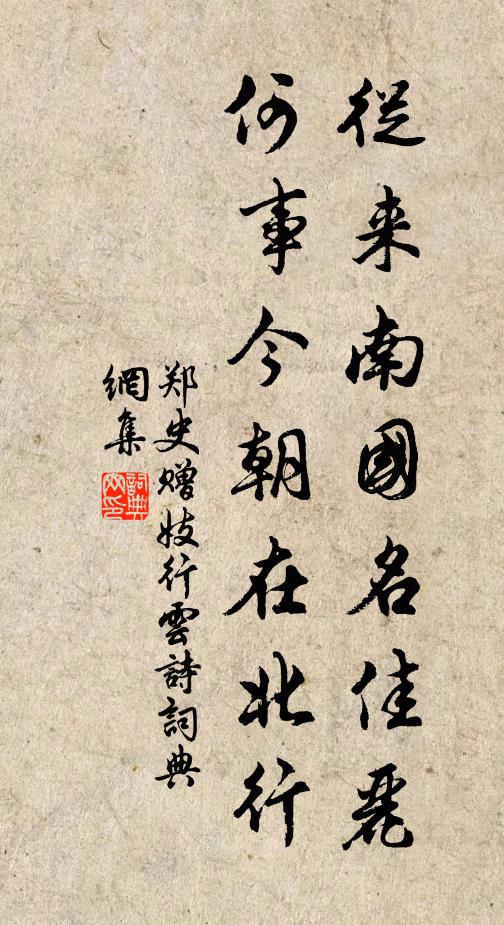 從来南國名佳麗
何事今朝在北行
郑史赠妓行雲詩詞典
網集
詞典
网印